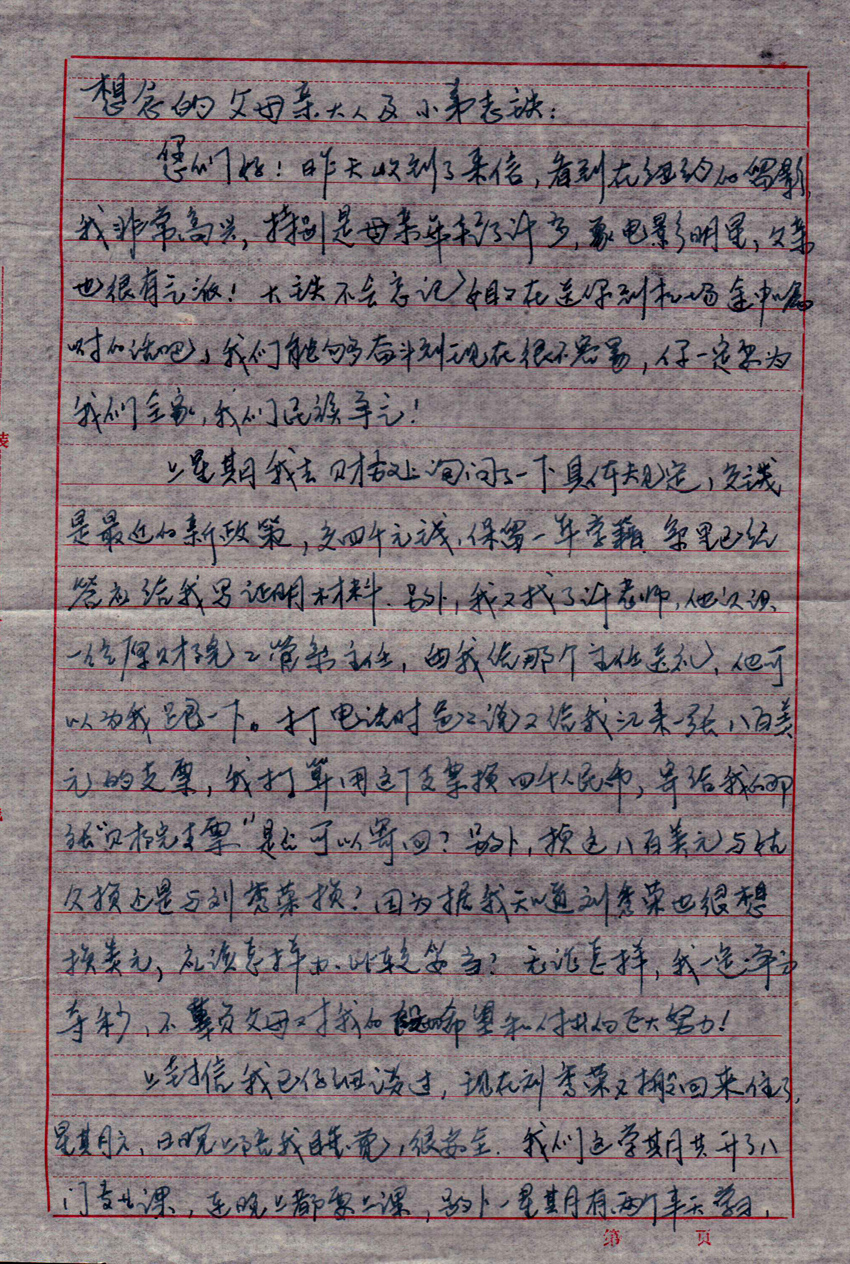 想念的父母亲大人及小弟志铁：
您们好！昨天收到了来信，看到在纽约的留影，
我非常高兴，特别是母亲年轻了许多，象电影明星，父亲
也很有气派！大铁不会忘记姐姐在送你到机场途中嘱
咐的话吧，我们能够奋斗到现在很不容易，你一定要为
我们全家，我们民族争光！
上星期日我去财校上询问了一下具体规定，交钱
是最近的新政策，交四千元钱，保留一年学籍，系里已经
答应给我写证明材料。另外，我又找了许老师，他认识
一位原财院工管系主任，由我给那个主任送礼，他可
以为我跑一下。打电话时爸爸说又给我汇来一张八百美
元的支票，我打算用这个支票换四千人民币，寄给我的那
张“财院支票”是否可以寄回？另外，换这八百美元与
换还是与刘秀荣换？因为据我知道刘秀荣也很想
换美元，应该怎样办比较妥当？无论怎样，我一定争分
夺秒，不辜负父母对我的希望和付出的巨大努力！
上封信我已仔细谈过，现在刘秀荣又搬回来住了，
星期六、日晚上陪我睡觉，很安全。我们这学期共开了八
门专业课，连晚上都要上课，另外一星期有两个半天学习，
第 页